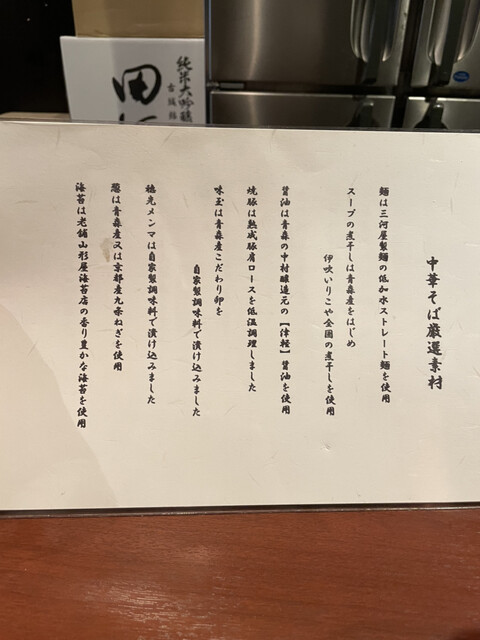 中華そば厳選素材
麺は三河屋製麺の低加水ストレート麺を使用
スープの煮干しは青森産をはじめ
伊吹いりこや全国の煮干しを使用
醤油は青森の中村醸造元の【津軽】醤油を使用
焼豚は熟成豚肩ロースを低温調理しました
味玉は青森産こだわり卵を
自家製調味料で漬け込みました
穂先メンマは自家製調味料で漬け込みました
葱は青森産又は京都産九条ねぎを使用
海苔は老舗山形屋海苔店の香り豊かな海苔を使用
純米大吟醸
田